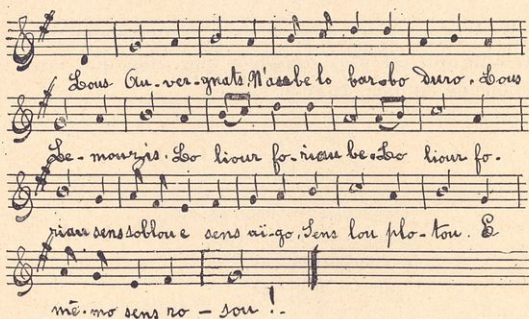 Lous Au-ver-gnats N'aabe lo bar-bo duro. Lous
Le-mouzis. Lo liour fo-riau be. Lo liour fo-
riau sens soblou e sens aï-go, Sens lou plo-tou. E
mē-mo sens ro-sou !..